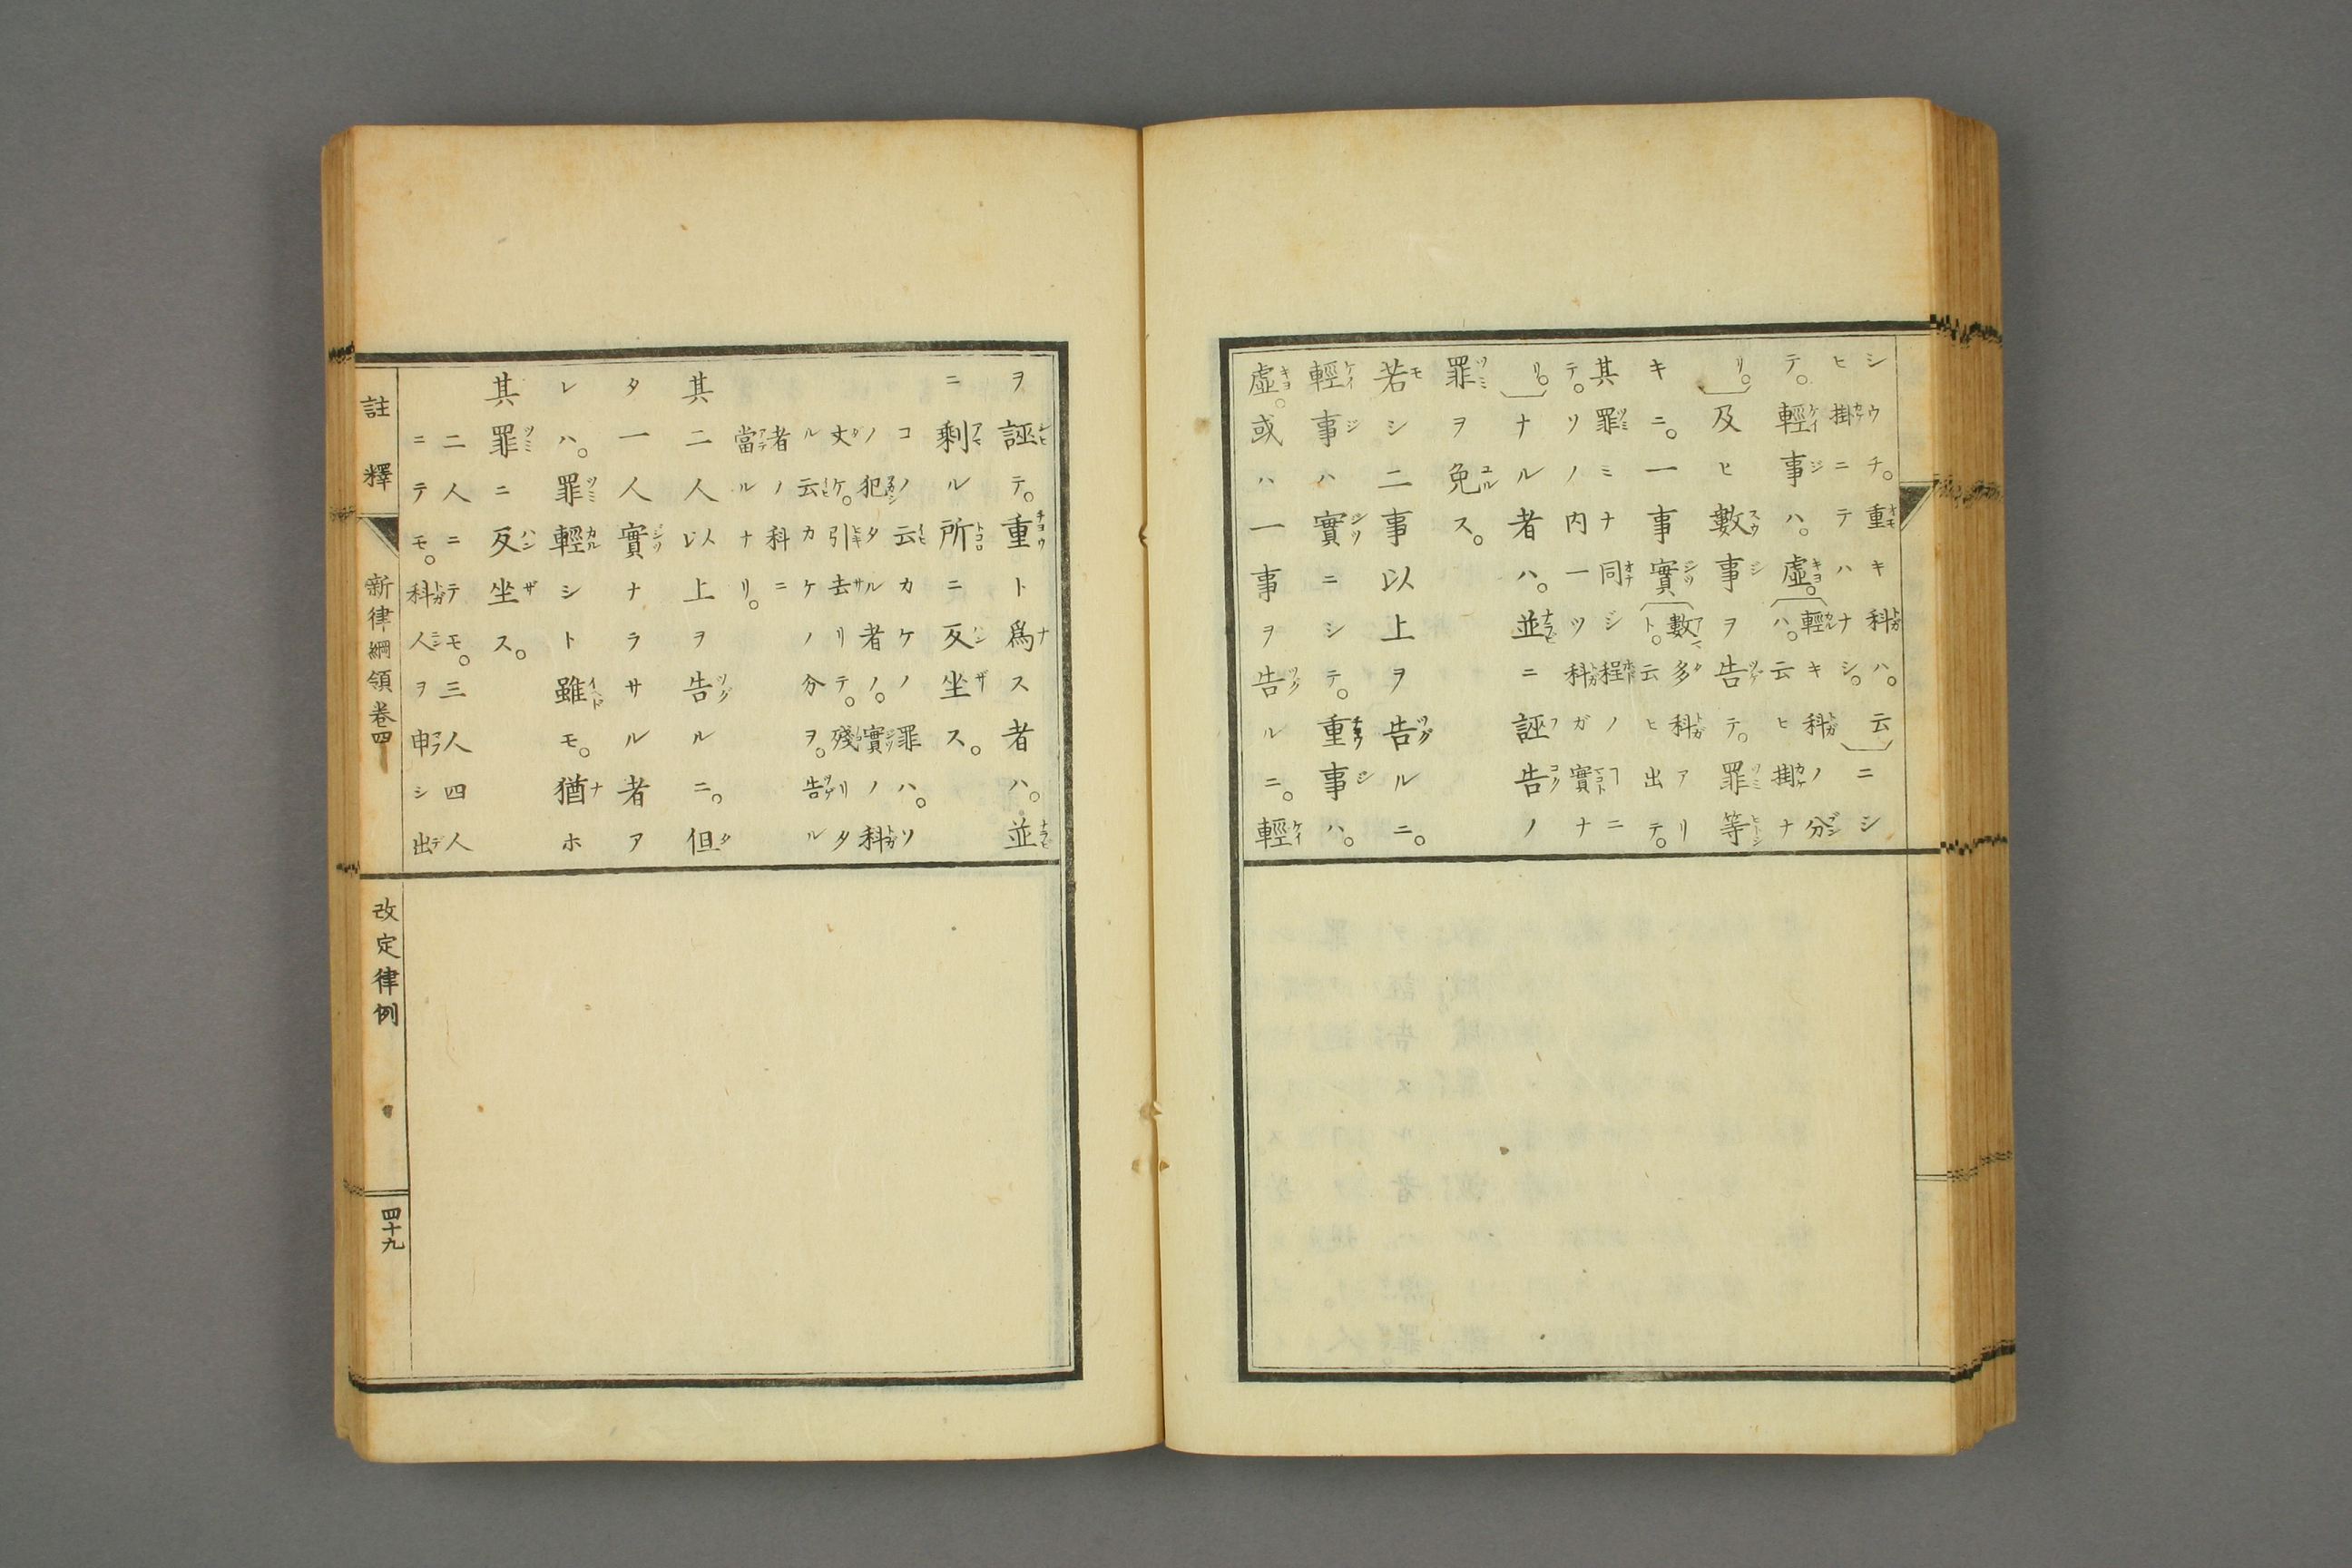 シウチ。重キ科ハ。云ニシ
ヒ掛ニテハナシ。
テ。輕事ハ。虛。輕キ科ノ分
ハ。云ヒ掛ナ
リ。及ヒ數事ヲ告テ。罪等
キニ。一事實數多科アリ
ト。云ヒ出テ。
其罪ミナ同シ程ノヿニ
テ。ソノ内一ツ科ガ實ナ
リ。ナル者ハ。並ニ誣告ノ
罪ヲ免ス。
若シ二事以上ヲ告ルニ。
輕事ハ實ニシテ。重事ハ。
虛。或ハ一事ヲ告ルニ。輕
ヲ誣テ。重ト爲ス者ハ。並
ニ剩ル所ニ反坐ス。
コノ云カケノ罪ハ。ソ
ノ犯タル者ノ。實ノ科
丈ケ。引去リテ。殘リタ
ル云カケノ分ヲ。告ル
者ノ科ニ
當ルナリ。
其二人以上ヲ告ルニ。但
タ一人實ナラサル者ア
レハ。罪輕シト雖モ。猶ホ
其罪ニ反坐ス。
二人ニテモ。三人四人
ニテモ。科人ヲ申シ出
註釋 新律綱領卷四 改定律例 四十九